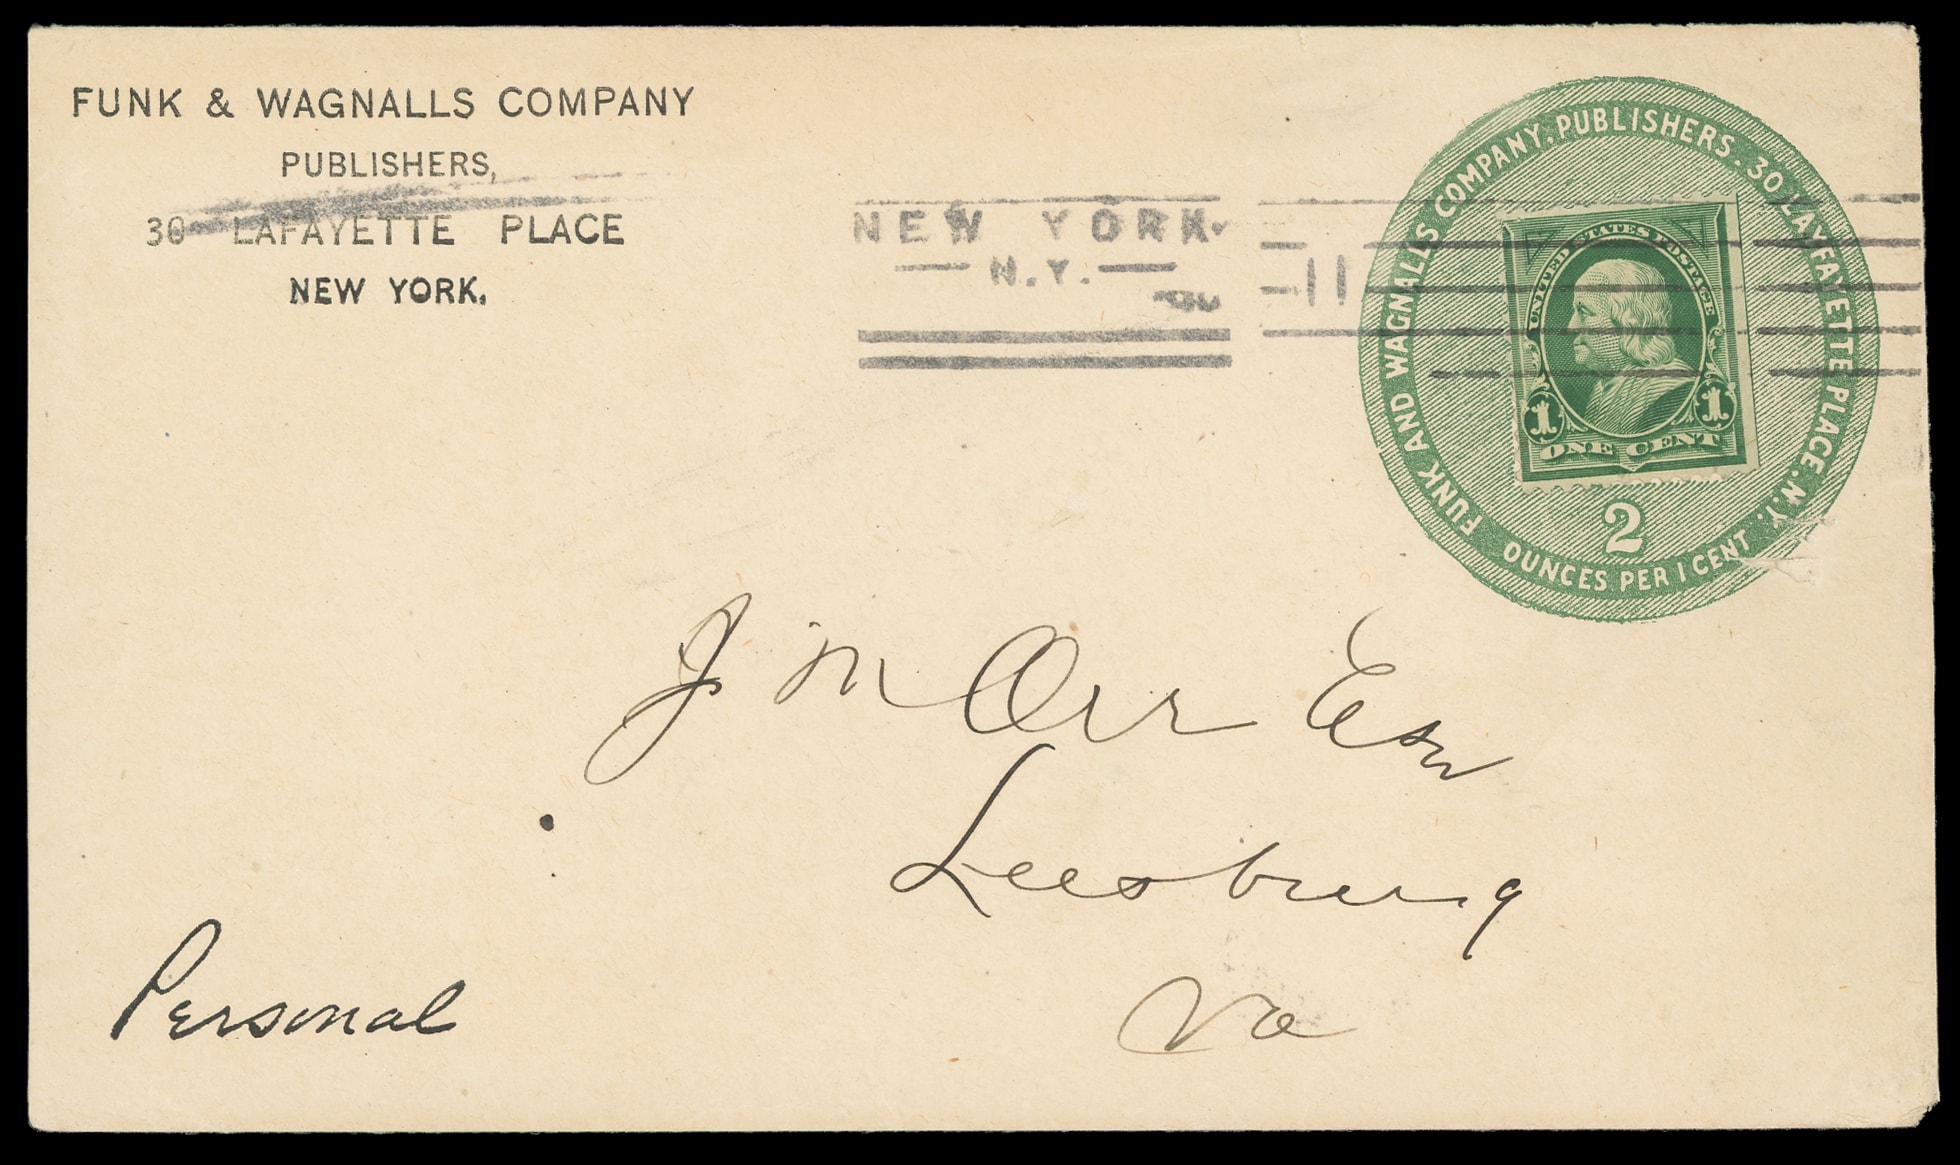 FUNK & WAGNALLS COMPANY
PUBLISHERS,
30 LAFAYETTE PLACE
NEW YORK.
NEW YORK
N.Y.
11
FUNK AND WAGNALLS COMPANY, PUBLISHERS. 30 LAFAYETTE PLACE. N.Y.
UNITED STATES POSTAGE
1 1
ONE CENT
2
OUNCES PER 1 CENT
J M Orr Esq
Leesburg
Va
Personal